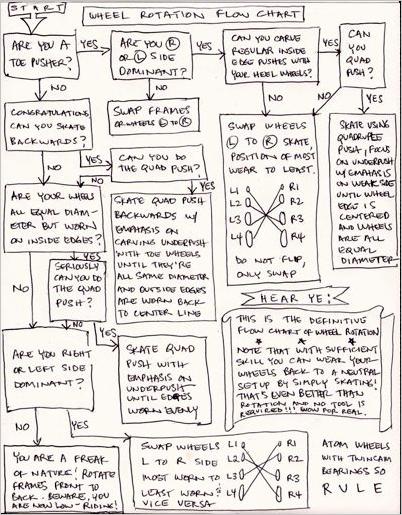 START
WHEEL ROTATION FLOW CHART
ARE YOU A
TOE PUSHER?
YES
ARE YOU R
OR L SIDE
DOMINANT?
YES
CAN YOU CARVE
REGULAR INSIDE
EDGE PUSHES WITH
YOUR HEEL WHEELS?
YES
CAN
YOU
QUAD
PUSH?
NO
NO
NO
NO
YES
CONGRATULATIONS
CAN YOU SKATE
BACKWARDS?
SWAP FRAMES
OR WHEELS L TO R
SWAP WHEELS
L TO R SKATE,
POSITION OF MOST
WEAR TO LEAST.
L1 R1
L2 R2
L3 R3
L4 R4
DO NOT FLIP,
ONLY SWAP
SKATE USING
QUADRUPLE
PUSH, FOCUS
ON UNDERPUSH
W/ EMPHASIS
ON WEAK SIDE
UNTIL WHEEL
EDGE IS
CENTERED
AND WHEELS
ARE ALL
EQUAL
DIAMETER
NO
YES
CAN YOU DO
THE QUAD PUSH?
NO
YES
ARE YOUR WHEELS
ALL EQUAL DIAM-
ETER BUT WORN
ON INSIDE EDGES?
SKATE QUAD PUSH
BACKWARDS W/
EMPHASIS ON
CARVING UNDERPUSH
WITH TOE WHEELS
UNTIL THEY'RE
ALL SAME DIAMETER
AND OUTSIDE EDGES
ARE WORN BACK
TO CENTER LINE
YES
NO
SERIOUSLY
CAN YOU DO
THE QUAD
PUSH?
NO
YES
HEAR YE:
THIS IS THE DEFINITIVE
FLOW CHART OF WHEEL ROTATION
NOTE THAT WITH SUFFICIENT
SKILL YOU CAN WEAR YOUR
WHEELS BACK TO A NEUTRAL
SETUP BY SIMPLY SKATING!
THAT'S EVEN BETTER THAN
ROTATION AND NO TOOL IS
REQUIRED!!! WOW FOR REAL.
ARE YOU RIGHT
OR LEFT SIDE
DOMINANT?
SKATE QUAD
PUSH WITH
EMPHASIS ON
UNDERPUSH
UNTIL EDGES
WORN EVENLY
NO
YES
YOU ARE A FREAK
OF NATURE! ROTATE
FRAMES FRONT TO
BACK. BEWARE, YOU
ARE NOW LOW-RIDING!
SWAP WHEELS
L TO R SIDE
MOST WORN TO
LEAST WORN?
VICE VERSA
L1 R1
L2 R2
L3 R3
L4 R4
ATOM WHEELS
WITH TWINCAM
BEARINGS SO
RULE